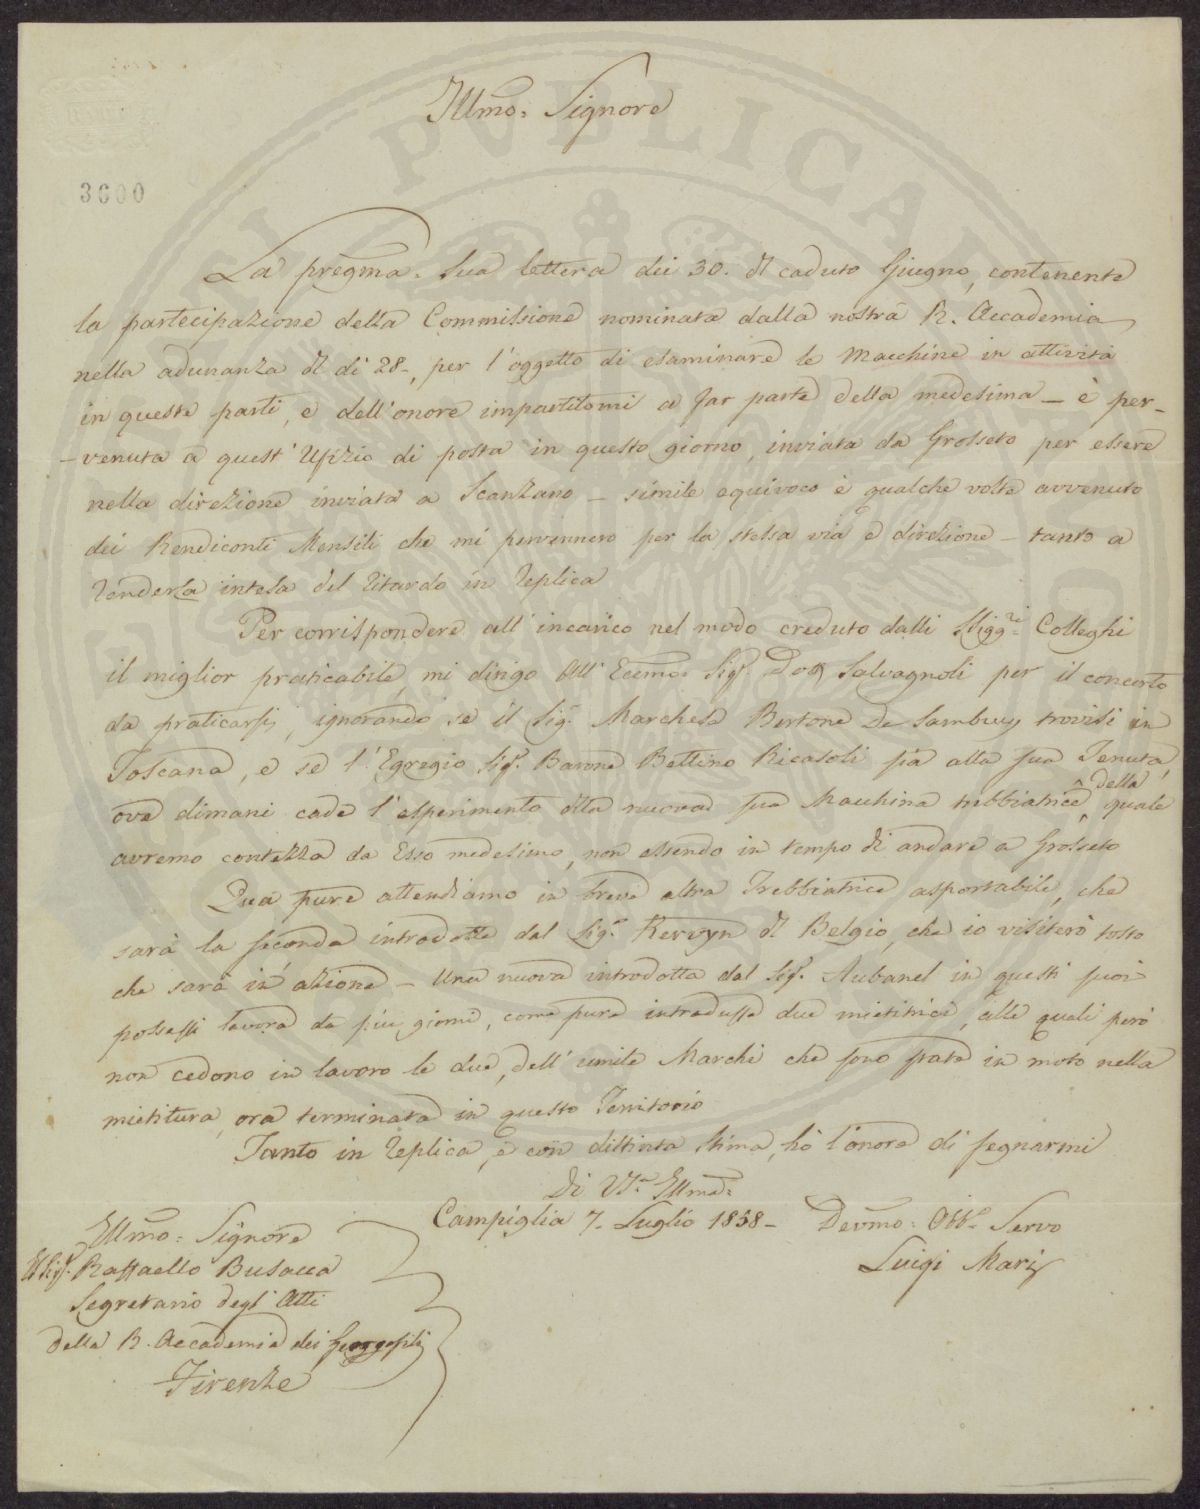 Illmo: Signore
3600
La pregma. Sua lettera dei 30. del caduto Giugno, contenente
la partecipazione della Commissione nominata dalla nostra R. Accademia
nella adunanza del dì 28-, per l'oggetto di esaminare le Macchine in attività
in queste parti, e dell'onore impartitomi a far parte della medesima – è per-
-venuta a quest'Ufizio di posta in questo giorno, inviata da Grosseto per essere
nella direzione inviata a Scanzano – simile equivoco è qualche volta avvenuto
dei Rendiconti Mensili che mi pervennero per la stessa via e direzione – tanto a
renderla intesa del ritardo in replica
Per corrispondere all'incarico nel modo creduto dalli Sigg.ri Colleghi
il miglior praticabile, mi dirigo all'Eccmo. Sig. Dott Salvagnoli per il concerto
da praticarsi, ignorando se il Sig. Marchese Bertone De Sambuy trovisi in
Toscana, e se l'Egregio Sig. Barone Bettino Ricasoli sia alla sua Tenuta,
ove dimani cade l'esperimento della nuova sua Macchina trebbiatrice, della quale
avremo contezza da Esso medesimo, non essendo in tempo di andare a Grosseto
Qua pure attendiamo in breve altra Trebbiatrice asportabile, che
sarà la seconda introdotta dal Sig. Kervyn del Belgio, che io visiterò tosto
che sarà in azione – Una nuova introdotta dal Sig. Aubanel in questi suoi
possessi lavora da più giorni, come pure introdusse due mietitrici, alle quali però
non cedono in lavoro le due, dell'umile Marchi che sono state in moto nella
mietitura, ora terminata in questo Territorio
Tanto in replica, e con distinta stima, ho l'onore di segnarmi
Di V.ra Illma:
Campiglia 7. Luglio 1858 – Devmo: Obb. Servo
Luigi Marij
Illmo: Signore
Il Sig. Raffaello Busacca
Segretario degl'Atti
della R. Accademia dei Georgofili
Firenze